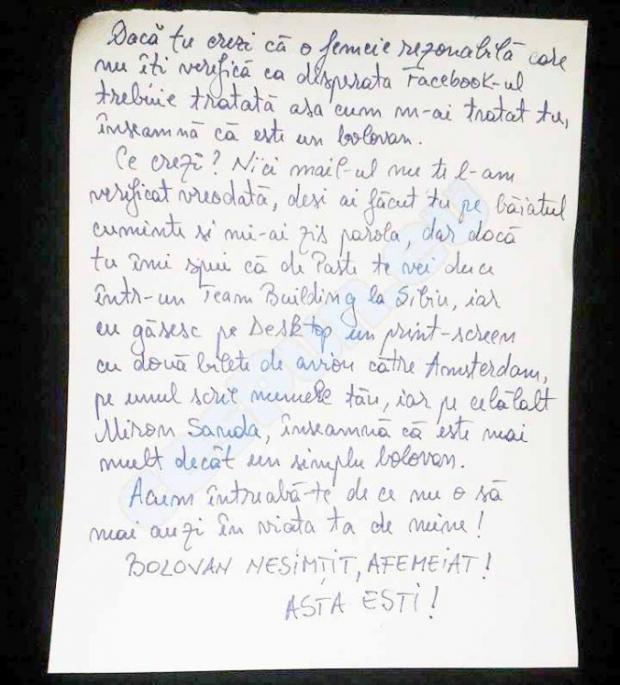 Dacă tu crezi că o femeie rezonabilă care
nu îti verifică ca disperata Facebook-ul
trebuie tratată asa cum m-ai tratat tu,
înseamnă că este un bolovan.
Ce crezi? Nici mail-ul nu ti l-am
verificat vreodată, desi ai făcut tu pe băiatul
cuminte si mi-ai zis parola, dar dacă
tu îmi spui că de Paste te vei duce
într-un Team Building la Sibiu, iar
eu găsesc pe Desktop un print-screen
cu două bilete de avion către Amsterdam,
pe unul scrie numele tău, iar pe celălalt
Miron Sanda, înseamnă că este mai
mult decât un simplu bolovan.
Acum întreabă-te de ce nu o să
mai auzi în viata ta de mine!
BOLOVAN NESIMȚIT, AFEMEIAT!
ASTA ESTI!